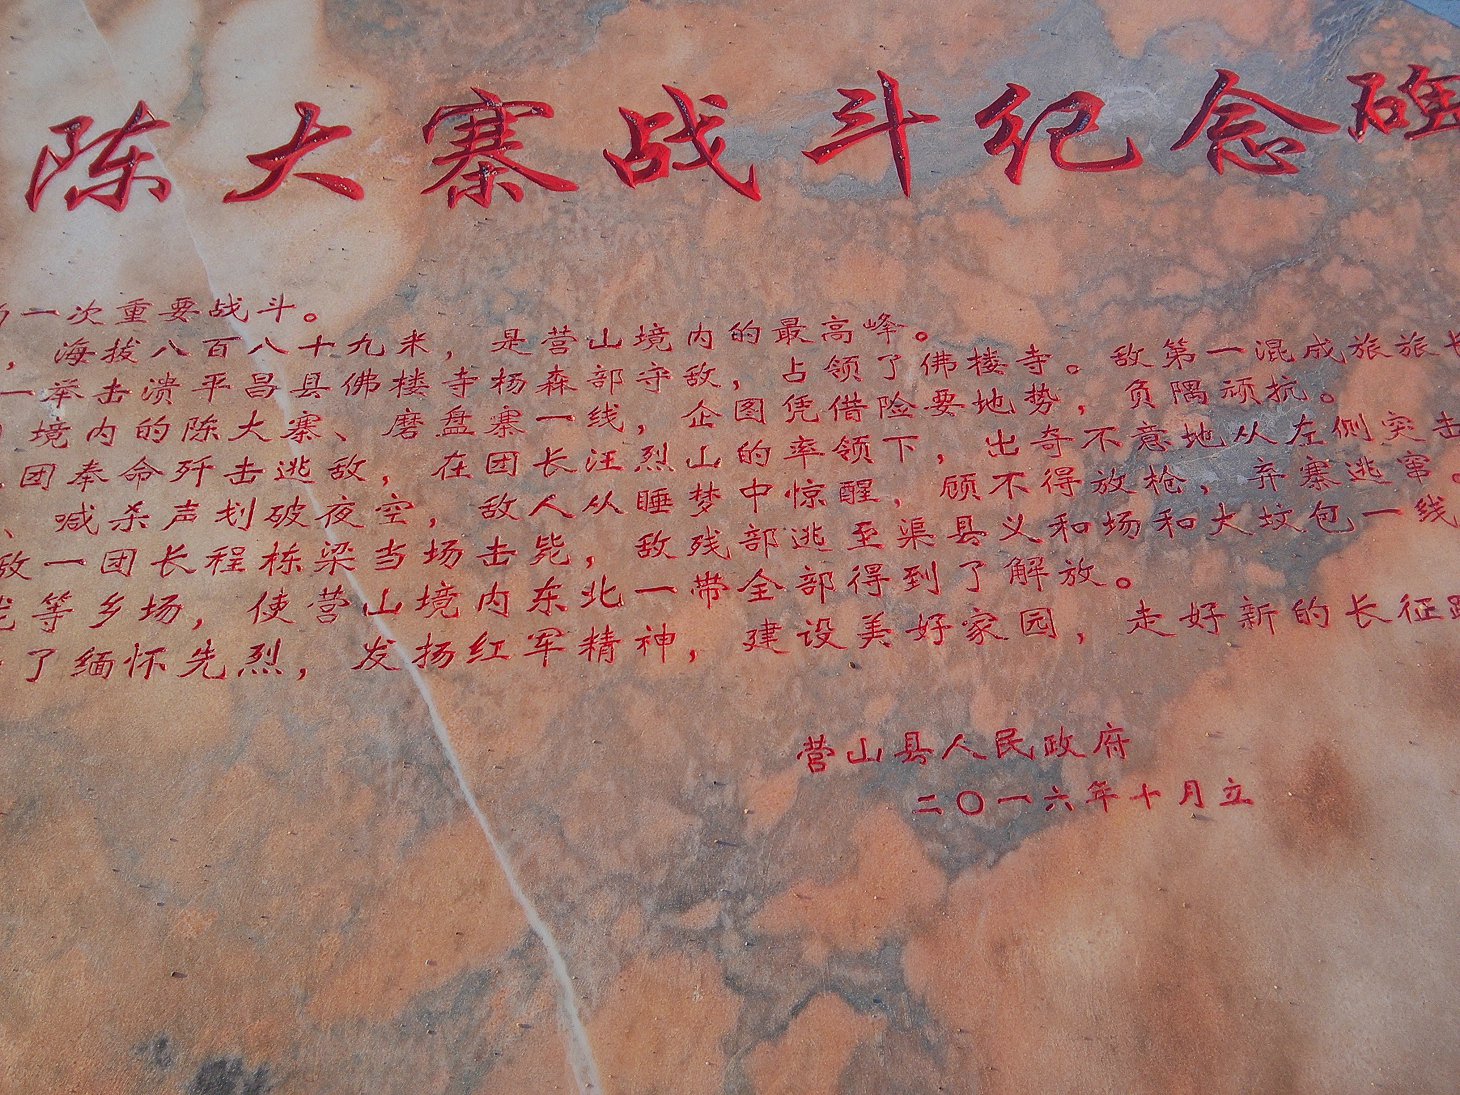 陈大寨战斗纪念碑
一次重要战斗。
，海拔八百八十九米，是营山境内的最高峰。
一举击溃平昌县佛楼寺杨森部守敌，占领了佛楼寺。敌第一混成旅旅长
境内的陈大寨、磨盘寨一线，企图凭借险要地势，负隅顽抗。
团奉命歼击逃敌，在团长汪烈山的率领下，出奇不意地从左侧突击
、喊杀声划破夜空，敌人从睡梦中惊醒，顾不得放枪，弃寨逃窜。
敌一团长程栋梁当场击毙，敌残部逃至渠县义和场和大坟包一线
等乡场，使营山境内东北一带全部得到了解放。
了缅怀先烈，发扬红军精神，建设美好家园，走好新的长征路
营山县人民政府
二〇一六年十月立